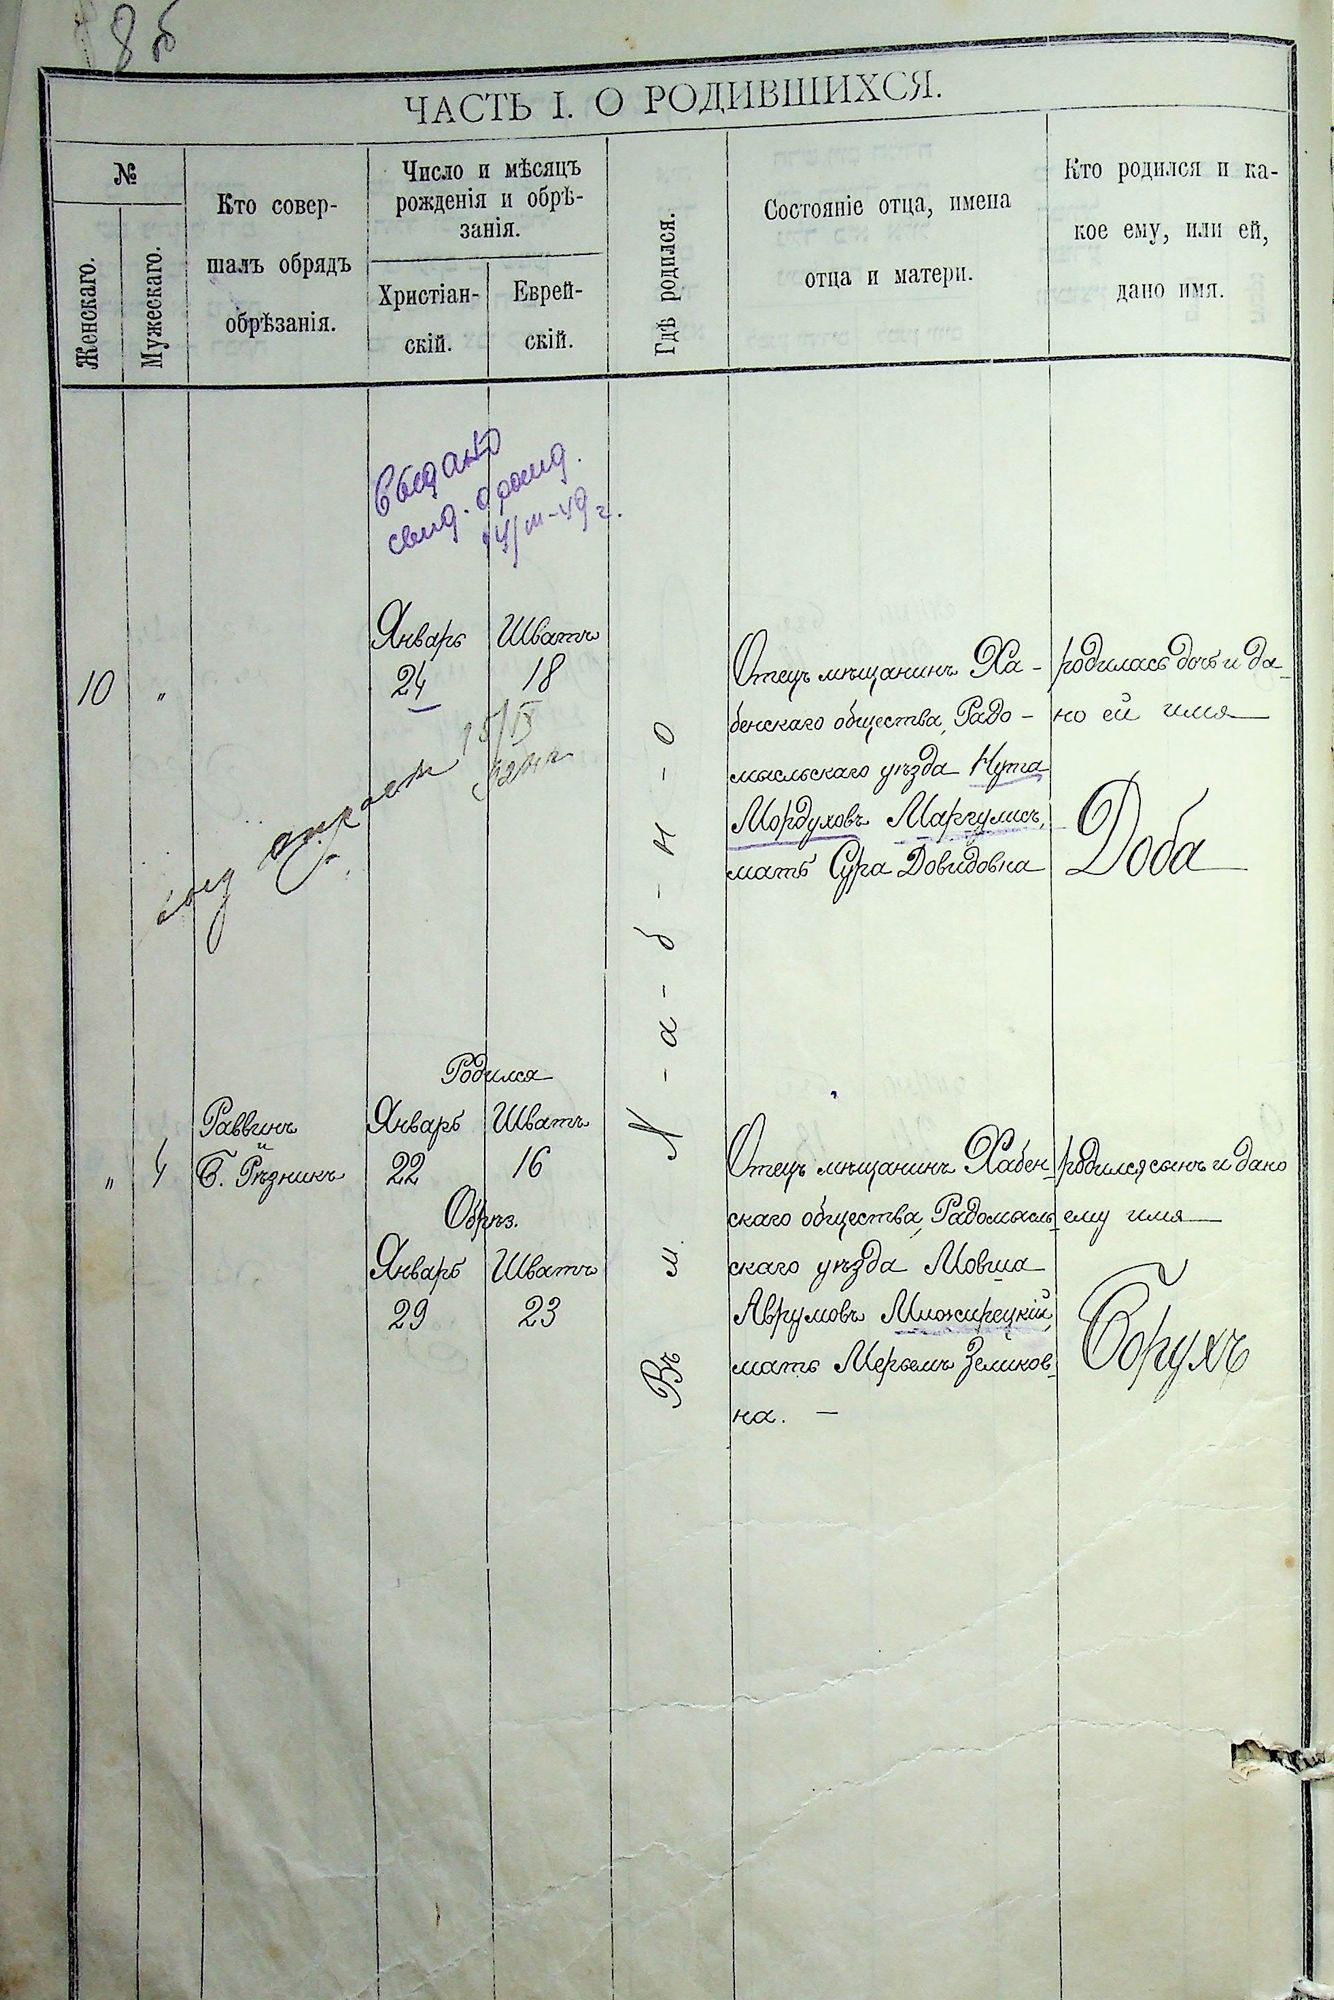 8б
ЧАСТЬ I. О РОДИВШИХСЯ.
№
Женскаго.
Мужескаго.
Кто совер-
шалъ обрядъ
обрѣзанія.
Число и мѣсяцъ
рожденія и обрѣ-
занія.
Христіан-
скій.
Еврей-
скій.
Гдѣ родился.
Состояніе отца, имена
отца и матери.
Кто родился и ка-
кое ему, или ей,
дано имя.
Выдано
свид. о рожд.
/III-49 г.
10
"
Январь
24
Шватъ
18
15/IX
Въ м. Х-а-б-н-о
Отецъ мѣщанинъ Ха-
бенскаго общества, Радо-
мысльскаго уѣзда Нута
Мордуховъ Маргулисъ,
мать Сура Довидовна
родилась дочь и да-
но ей имя
Доба
"
4
Раввинъ
и
Б. Рѣзникъ
Родился
Январь
22
Шватъ
16
Обрѣз.
Январь
29
Шватъ
23
Отецъ мѣщанинъ Хабен-
скаго общества, Радомысль-
скаго уѣзда Мовша
Аврумовъ
мать Мерьемъ Зеликов-
на. —
родился сынъ и дано
ему имя
Борухъ